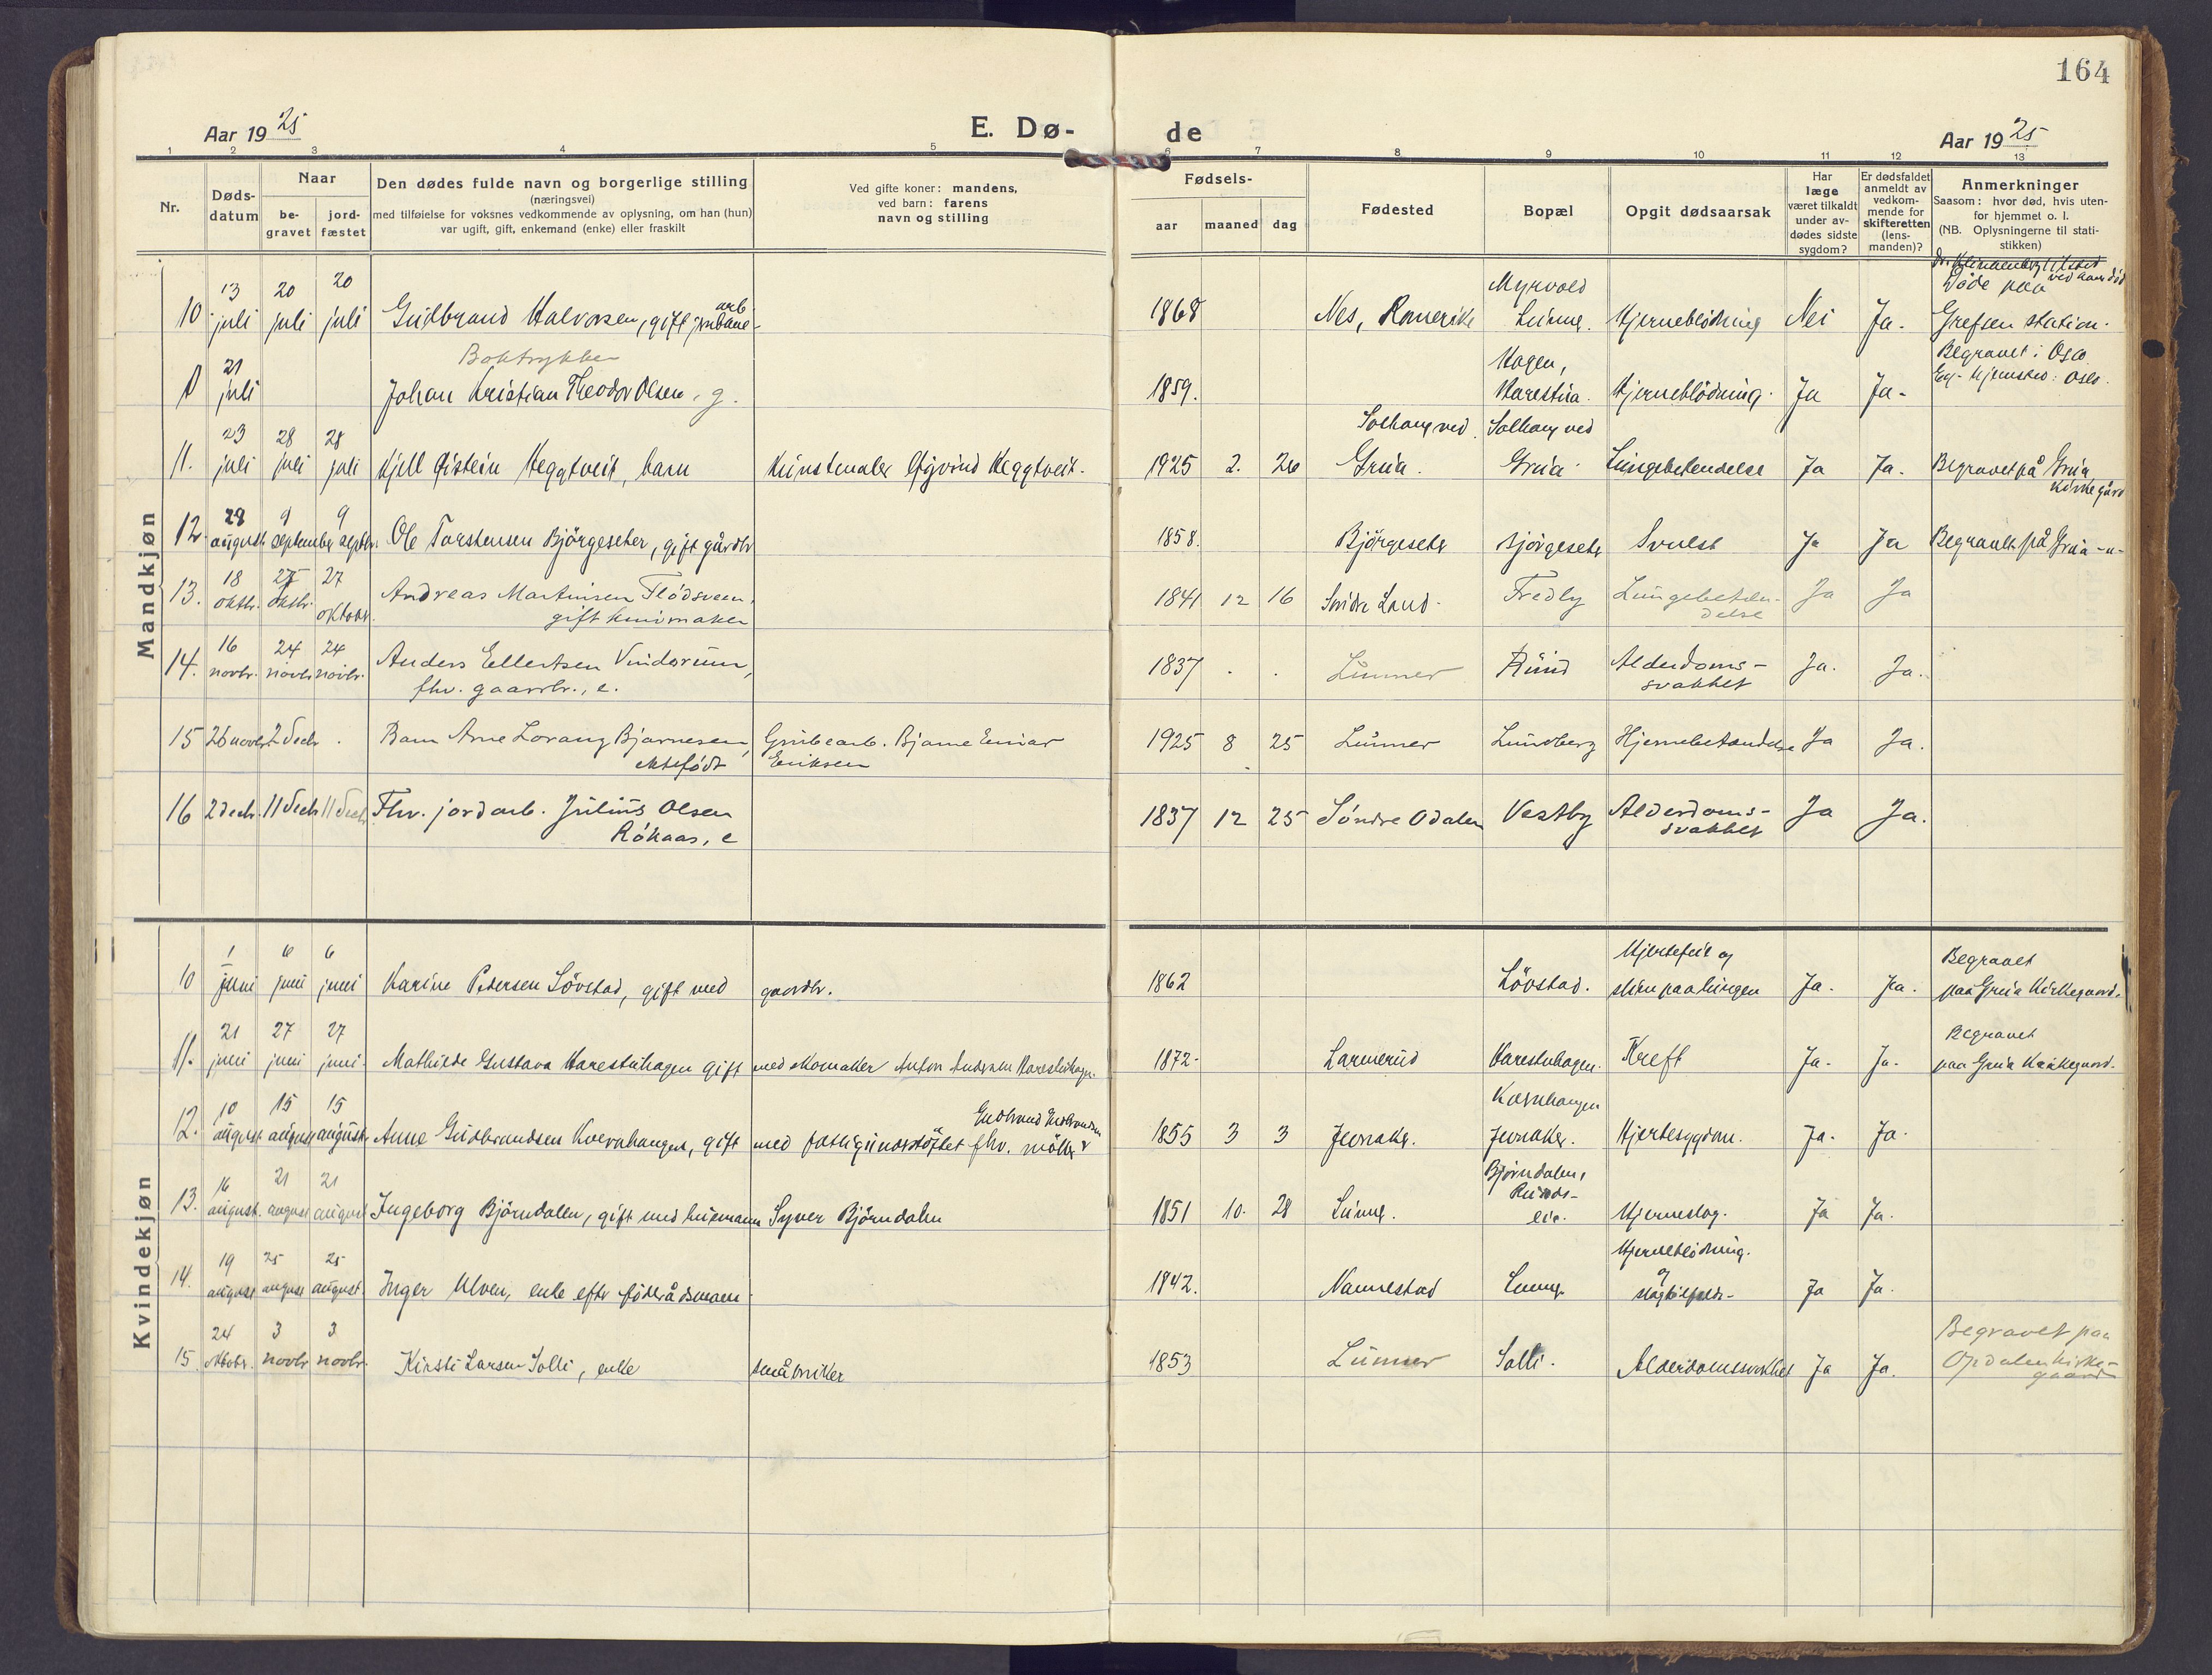 164
Aar 1925
E. Dø-
de
Aar 1925
1 2 3 4 5 6 7 8 9 10 11 12 13
Nr.
Døds-
datum
Naar
be-
gravet
jord-
fæstet
Den dødes fulde navn og borgerlige stilling
(næringsvei)
med tilføielse for voksnes vedkommende av oplysning, om han (hun)
var ugift, gift, enkemand (enke) eller fraskilt
Ved gifte koner: mandens,
ved barn: farens
navn og stilling
Fødsels-
aar
maaned
dag
Fødested
Bopæl
Opgit dødsaarsak
Har
læge
været tilkaldt
under av-
dødes sidste
sygdom?
Er dødsfaldet
anmeldt av
vedkom-
mende for
skifteretten
(lens-
manden)?
Anmerkninger
Saasom: hvor død, hvis uten-
for hjemmet o. l.
(NB. Oplysningerne til stati-
stikken)
Mandkjøn
10 13 juli 20 juli 20 juli Gudbrand Halvorsen, gift jernbane-
arb
1868 Nes, Romerike Myrvold
Lunner. Hjerneblödning Nei Ja.
ved hans död
Döde paa
Grefsen station.
21 juli Boktrykker
Johan Kristian Theodor Olsen, g.
1859. Hagen,
Harestua. Hjerneblödning. Ja Ja-
Begravet i Oslo
Eg. hjemsted: Oslo.
11. 23 juli 28 juli 28 juli Kjell Øistein Heggtveit, barn Kunstmaler Øyvind Heggtveit.
1925 2. 26 Solhaug ved
Grua. Solhaug ved
Grua. Lungebetendelse Ja Ja. Begravet på Grua
Kirkegård
12. 28 august 9 september 9 septbr. Ole Torstensen Björgeseter, gift gårdbr
1858. Björgeseter Björgeseter Svulst Ja Ja Begravet på Grua -"-
13. 18 oktbr. 27 oktbr. 27 oktobr. Andreas Martinsen Flödsveen,
gift knivmaker
1841 12 16 Søndre Land. Fredly Lungebeten-
delse Ja Ja
14. 16 novbr. 24 novbr 24 novbr. Anders Ellertsen Vindorum,
fhv. gaardbr., e.
1837 . . Lunner Rund Alderdoms-
svakhet Ja. Ja.
15 26 novbr. 2 decbr . Barn Arne Lorang Bjarnesen,
ektefödt Grubearb. Bjarne Einar
Eriksen
1925 8 25 Lunner Lundberg Hjernebetændelse Ja Ja.
16 2 decbr. 11 decbr 11 decbr Fhv. jordarb. Julius Olsen
Rökaas, e
1837 12 25 Söndre Odalen Vestby Alderdoms-
svakhet Ja Ja.
Kvindekjøn
10 1 juni 6 juni 6 juni Karine Pedersen Lövstad, gift med gaardbr.
1862 Lövstad. Hjertefeil og
sten paa lungen Ja. Ja. Begravet
paa Grua Kirkegaard.
11. 21 juni 27 juni 27 juni. Mathilde Gustava Harestuhagen gift med skomaker Anton Andersen Harestuhagen
1872. Larmerud Harestuhagen. Kreft Ja. Ja. Begravet
paa Grua Kirkegaard.
12. 10 august 15 august 15 august. Anne Gudbrandsen Kvernhaugen, gift med fattigunderstöttet fhv. möller
Gudbrand Gudbrandsen
1855 3 3 Jevnaker. Kvernhaugen
Jevnaker. Hjertesygdom. Ja. Ja.
13. 16 august. 21 august 21 august Ingeborg Björndalen, gift med husmann Syver Björndalen
1851 10. 28 Lunner. Björndalen,
Runds-
eie. Hjerneslag. Ja Ja.
14. 19 august 25 august 25 august. Inger Ulven, enke efter föderådsmann
1842. Nannestad Lunner Hjerneblödning.
og
slagtilfelde- Ja Ja.
15. 24 oktobr. 3 novbr 3 novbr. Kirsti Larsen Solli, enke småbruker
1853 Lunner Solli. Alderdomssvakhet Ja Ja. Begravet paa
Opdalen kirke-
gaard